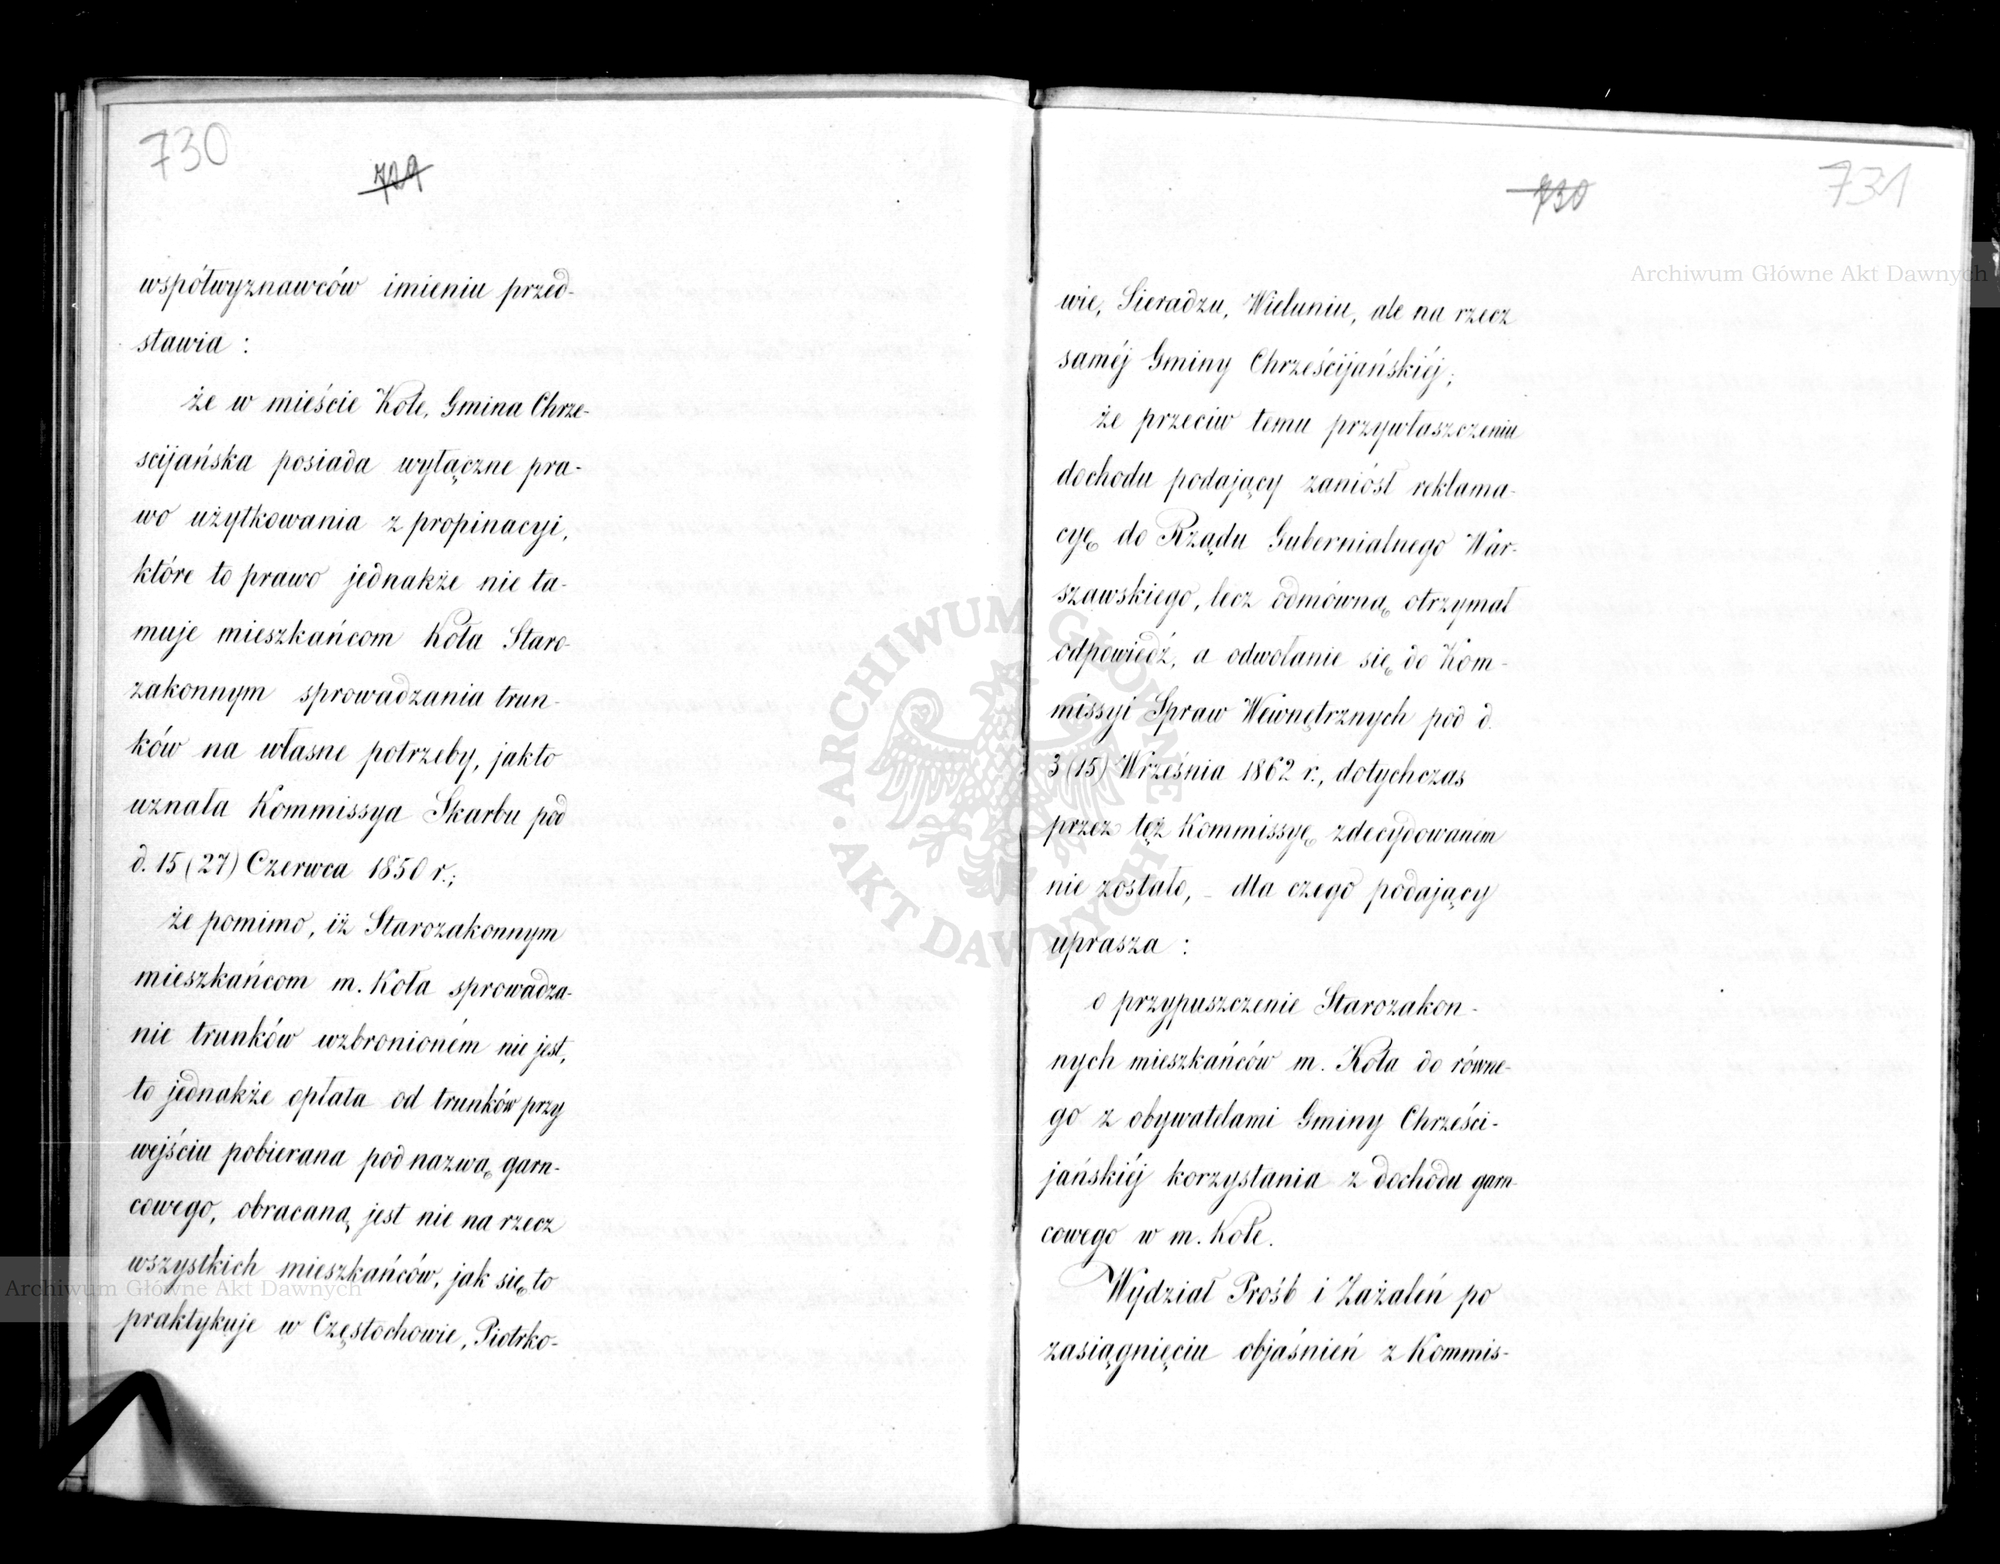 730
729
współwyznawców imieniu przed-
stawia :
że w mieście Kole, Gmina Chrze-
ścijańska posiada wyłączne pra-
wo użytkowania z propinacyi,
które to prawo jednakże nie ta-
muje mieszkańcom Koła Staro-
zakonnym sprowadzania trun-
ków na własne potrzeby, jakto
uznała Kommissya Skarbu pod
d. 15 (27) Czerwca 1850 r.;
że pomimo, iż Starozakonnym
mieszkańcom m. Koła sprowadza-
nie trunków wzbronioném nie jest,
to jednakże opłata od trunków przy
wejściu pobierana pod nazwą garn-
cowego, obracaną jest nie na rzecz
wszystkich mieszkańców, jak się to
praktykuje w Częstochowie, Piotrko-
730
731
wie, Sieradzu, Wieluniu, ale na rzecz
saméj Gminy Chrześcijańskiéj;
że przeciw temu przywłaszczeniu
dochodu podający zaniósł reklama-
cyę do Rządu Gubernialnego War-
szawskiego, lecz odmówną otrzymał
odpowiedź, a odwołanie się do Kom-
missyi Spraw Wewnętrznych pod d.
3 (15) Września 1862 r., dotychczas
przez tęż Kommissyę zdecydowaném
nie zostało, – dla czego podający
uprasza :
o przypuszczenie Starozakon-
nych mieszkańców m. Koła do równe-
go z obywatelami Gminy Chrześci-
jańskiéj korzystania z dochodu garn-
cowego w m. Kole.
Wydział Prośb i Zażaleń po
zasiągnięciu objaśnień z Kommis-
Archiwum Główne Akt Dawnych
Archiwum Główne Akt Dawnych
ARCHIWUM GŁÓWNE · AKT DAWNYCH ·